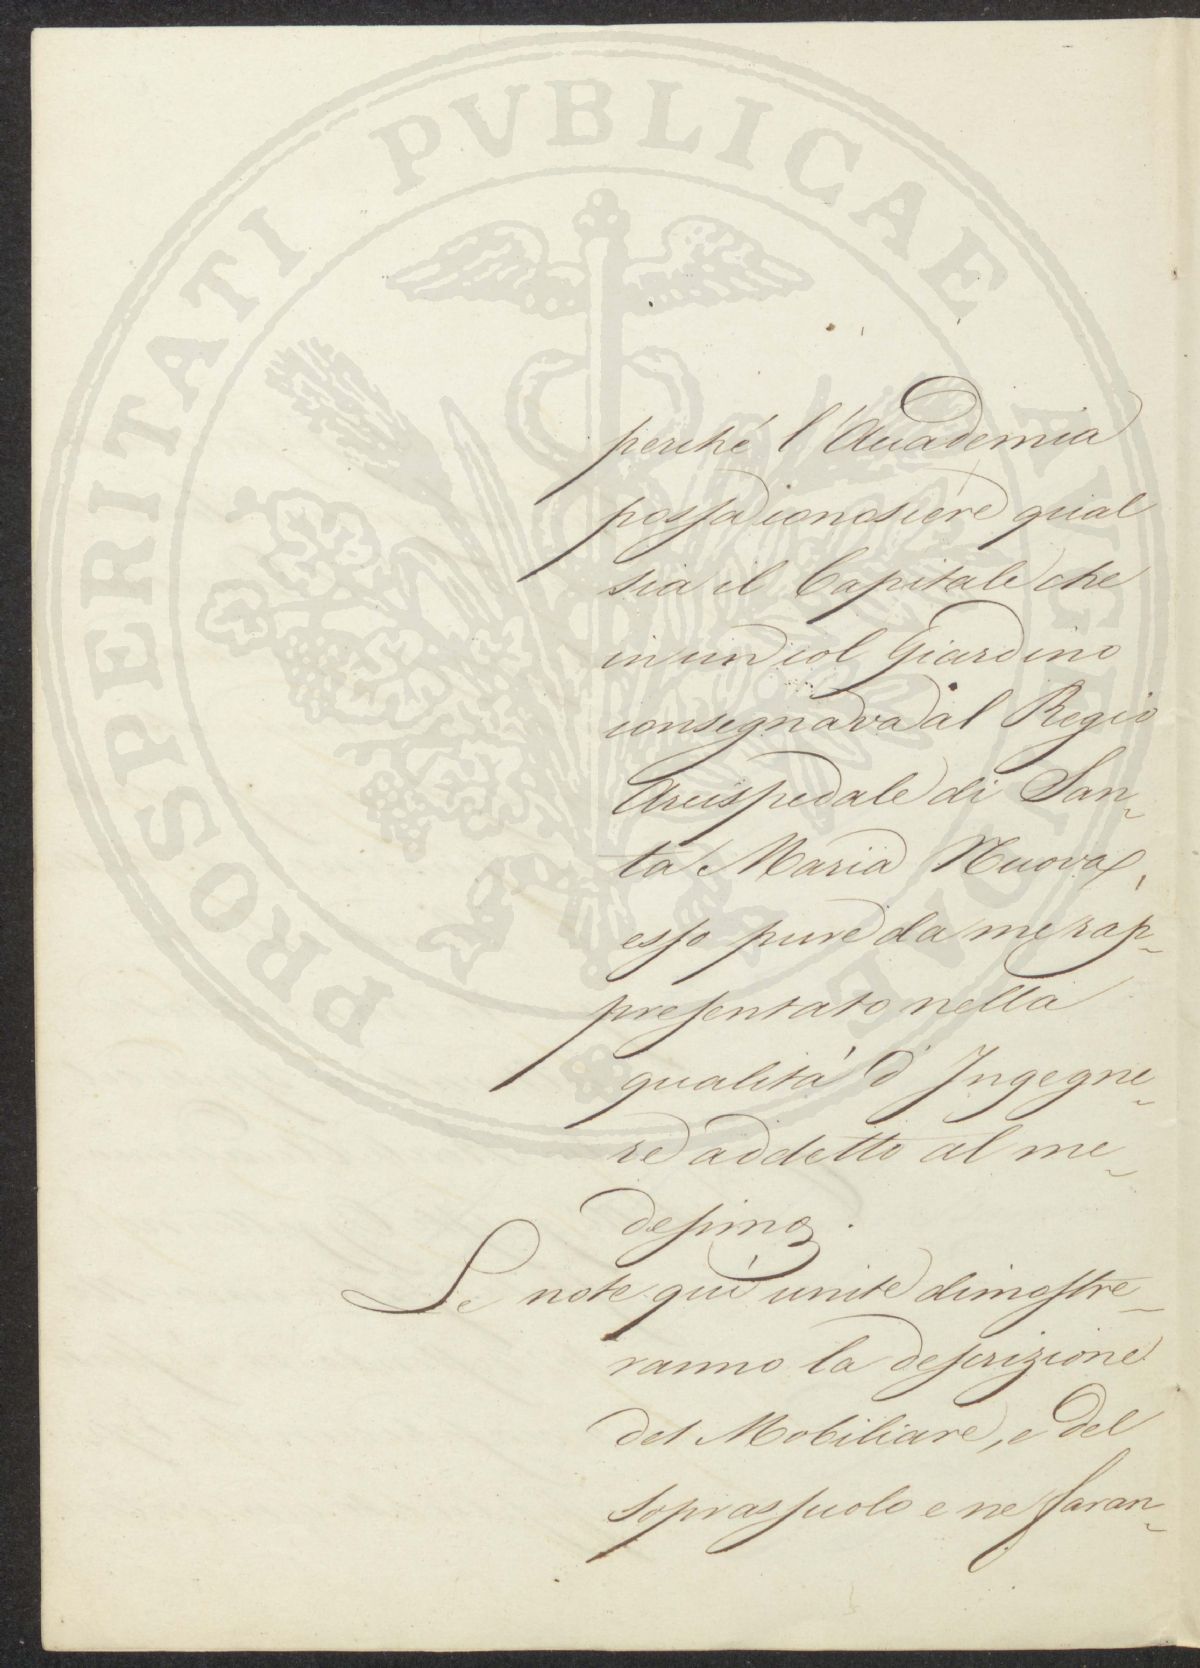 PROSPERITATI PVBLICAE AVGENDAE
perché l'Accademia
possa conoscere qual
sia il Capitale che
in un col Giardino
consegnava al Regio
Arcispedale di San-
ta Maria Nuova,
esso pure da me rap-
presentato nella
qualità d'Ingegne-
re addetto al me-
desimo.
Le note quì unite dimostre-
ranno la descrizione
del Mobiliare, e del
soprassuolo e ne faran-